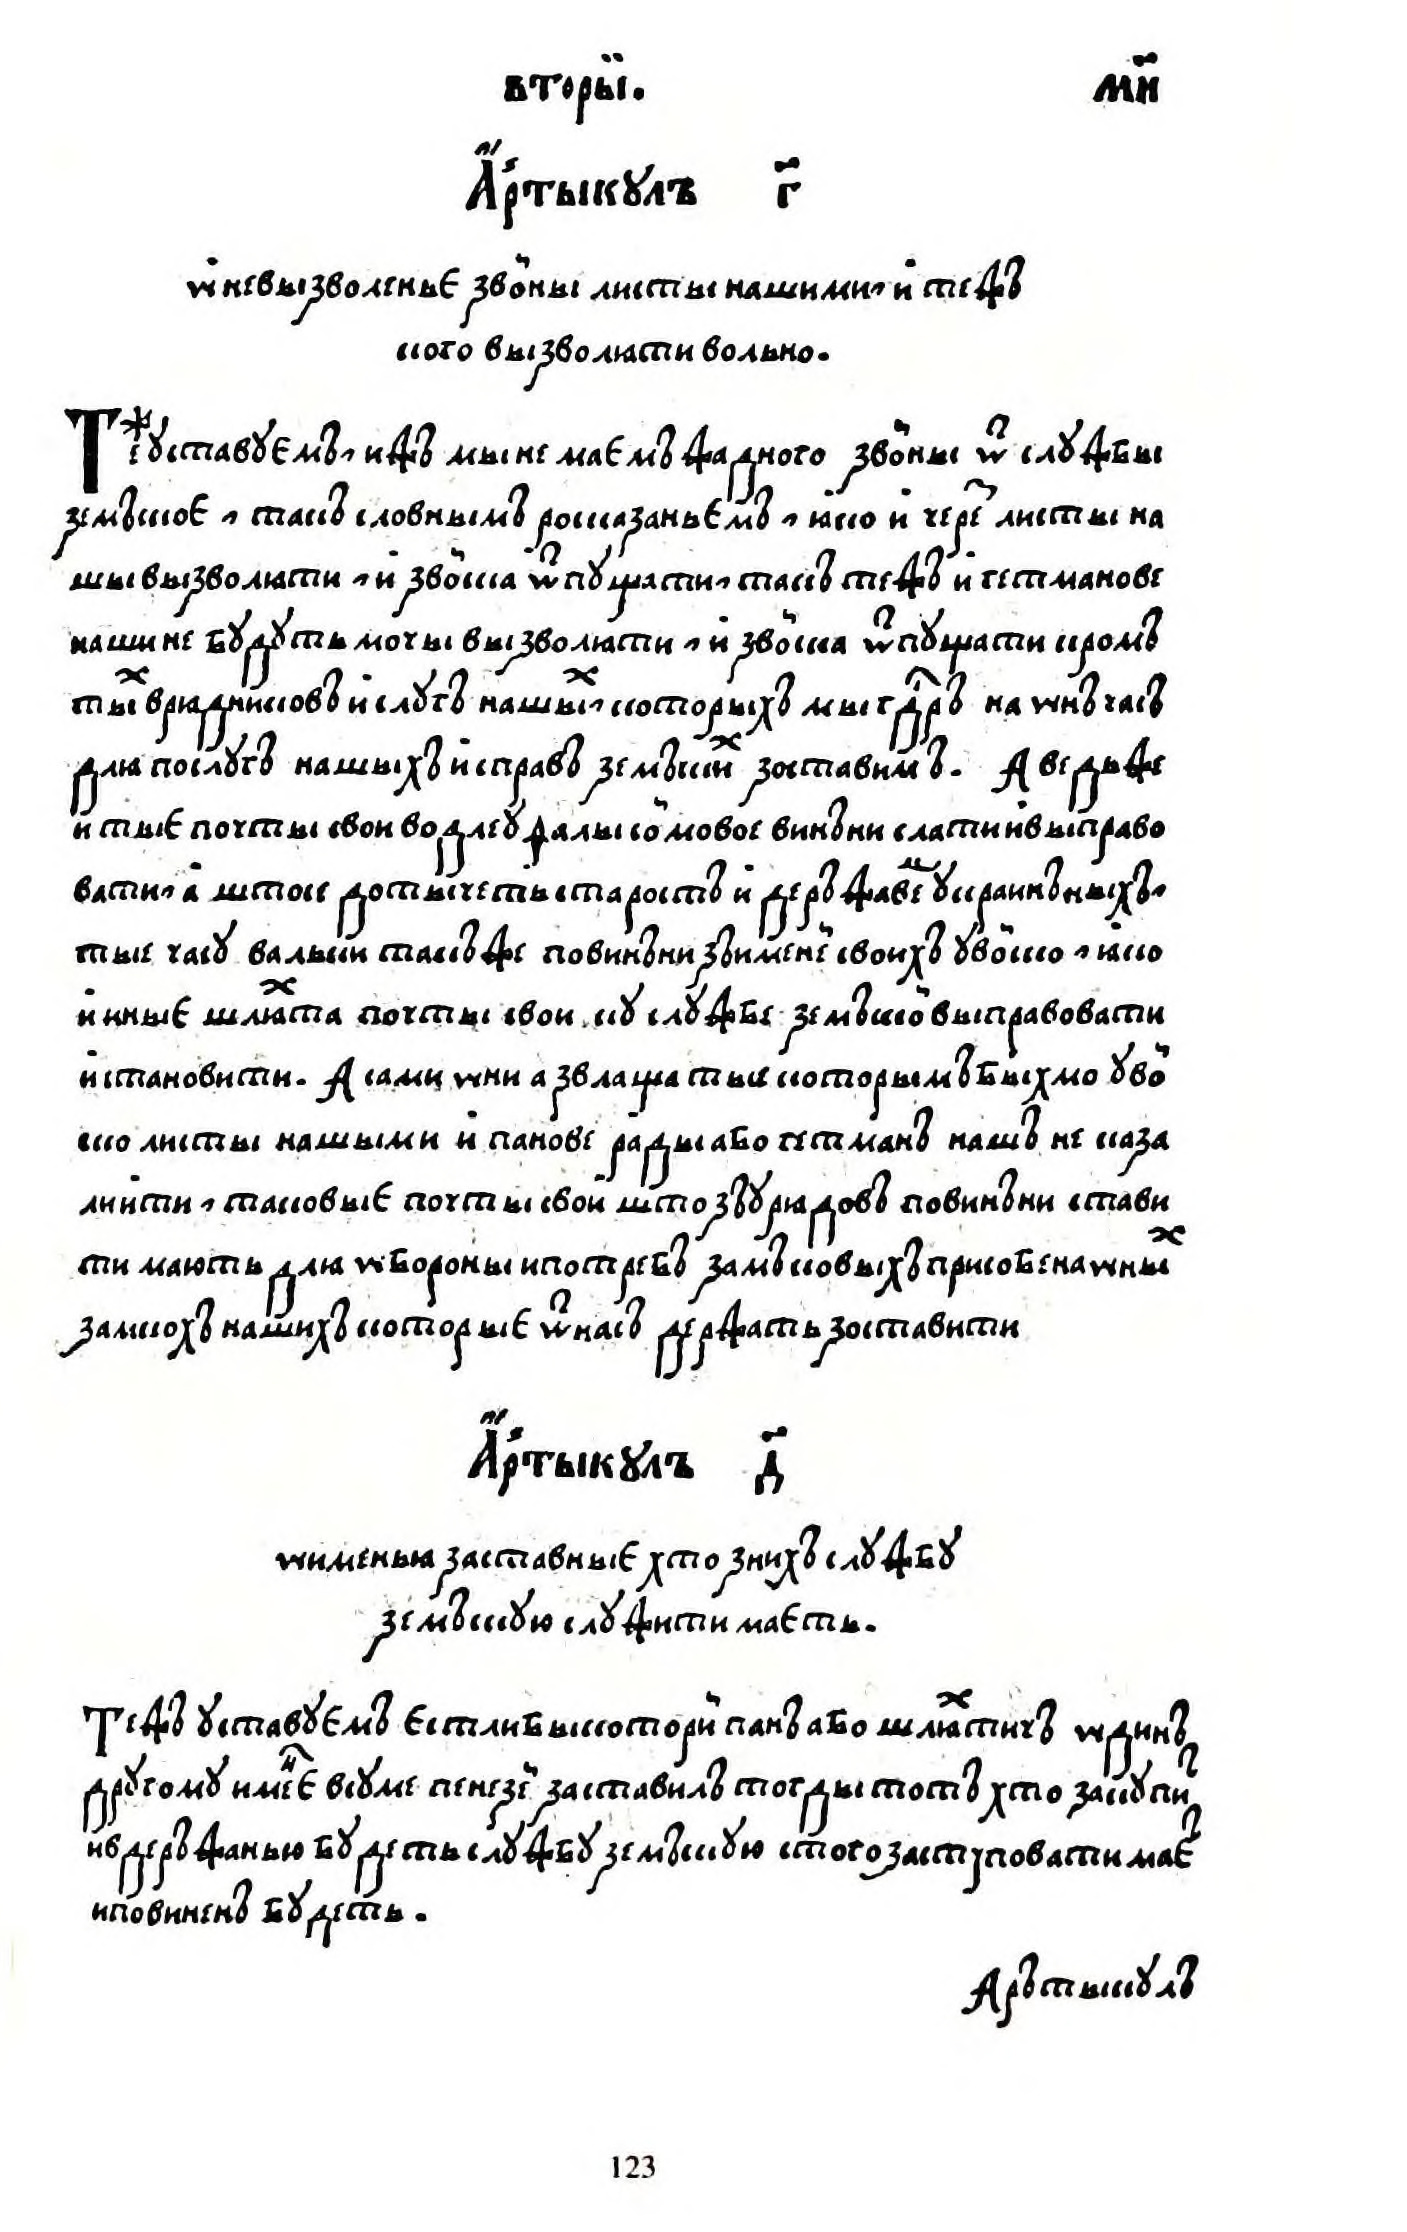 вторыи. м҃и
Артыкулъ г҃
ѡ невызволенье звоины листы нашими, и тежъ
кого вызволяти вольно.
Теж уставуемъ, ижъ мы не маемъ жадного звоины ѿ службы
земъское, такъ словнымъ росказаньемъ, яко и чере листы на
шы вызволяти, и звоиска ѿпущати, такъ тежъ и гетманове
наши не будуть мочы вызволяти, и звоиска ѿпущати кромъ
тых врядниковъ и слугъ нашых, которыхъ мы гдръ на ѡнъ часъ
для послугъ нашыхъ и справъ земъских зоставимъ. А ведьже
и тые почты свои водле уфалы соимовое винъни слати и выправо
вати, а штосе дотычеть старостъ и деръжавец украинъныхъ,
тые часу валки такъже повинъни зъименеи своихъ у воиско, яко
и иные шляхта почты свои ку службе земъскои выправовати
и становити. А сами ѡни а звлаща тые которымъ быхмо у вои
ско листы нашыми и панове рады або гетманъ нашъ не каза
ли ити, таковые почты свои што зъ урядовъ повинъни стави
ти мають для ѡбороны и потребъ замъковыхъ при собе на ѡных
замкохъ нашихъ которые ѿ насъ держать зоставити
Артыкулъ д҃
ѡ именья заставные хто з нихъ службу
земъскую служити маеть.
Тежъ уставуемъ естли бы которыи панъ або шляхтичъ ѡдинъ
другому имене в суме пенезеи заставилъ тогды тотъ хто закупитъ
и в деръжанью будеть службу земъскую с того заступовати маетъ
и повиненъ будеть.
Арътыкулъ
123